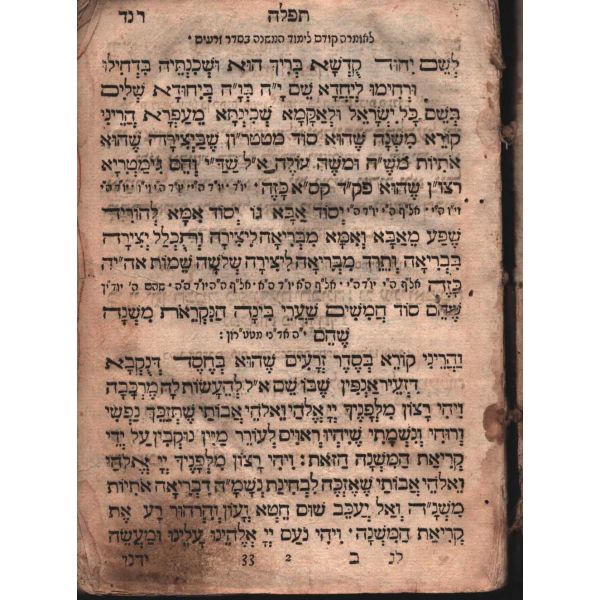 תפלה
רנד
לאומרה קודם לימוד המשנה בסדר זרעים .
לְשֵׁם יִחוּד קֻדְשָׁא בְּרִיךְ הוּא וּשְׁכִנְתֵּיהּ בִּדְחִילוּ
וּרְחִימוּ לְיַחֲדָא שֵׁם י"ה בְּו"ה בְּיִחוּדָא שְׁלִים
בְּשֵׁם כָּל יִשְׂרָאֵל וּלְאָקְמָא שְׁכִינְתָּא מֵעַפְרָא הֲרֵינִי
קוֹרֵא מִשְׁנָה שֶׁהוּא סוֹד מטטר"ון שֶׁבַּיְצִירָה שֶׁהוּא
אוֹתִיּוֹת מֹשֶׁ"ה וּמֹשֶׁה עוֹלֶה א"ל שַׁדַּ"י וְהֵם גִּימַטְרִיָּא
רצו"ן שֶׁהוּא פק"ד קס"א כָּזֶה:
יְסוֹד אַבָּא גוֹ יְסוֹד אִמָּא לְהוֹרִיד
שֶׁפַע מֵאַבָּא וְאִמָּא מִבְּרִיאָה לִיצִירָה וְתִכָּלֵל יְצִירָה
בִּבְרִיאָה וְתֵרֵד מִבְּרִיאָה לִיצִירָה שְׁלֹשָׁה שֵׁמוֹת אה"יה
כָּזֶה
שֶׁהֵם סוֹד הַחֲמִשִּׁים שַׁעֲרֵי בִינָה הַנִּקְרֵאת מִשְׁנָה
שֶׁהֵם
וַהֲרֵינִי קוֹרֵא בְּסֵדֶר זְרָעִים שֶׁהוּא בְּחֶסֶד דְּנֻקְבָא
דִּזְעֵיר אַנְפִּין שֶׁבּוֹ שֵׁם א"ל לְהֵעָשׂוֹת לָהּ מֶרְכָּבָה
וִיהִי רָצוֹן מִלְּפָנֶיךָ יְיָ אֱלֹהַי וֵאלֹהֵי אֲבוֹתַי שֶׁתְּזַכֵּךְ נַפְשִׁי
וְרוּחִי וְנִשְׁמָתִי שֶׁיִּהְיוּ רְאוּיִם לְעוֹרֵר מַיִין נוּקְבִין עַל יְדֵי
קְרִיאַת הַמִּשְׁנָה הַזֹּאת: וִיהִי רָצוֹן מִלְּפָנֶיךָ יְיָ אֱלֹהַי
וֵאלֹהֵי אֲבוֹתַי שֶׁאֶזְכֶּה לִבְחִינַת נְשָׁמָ"ה דִּבְרִיאָה אוֹתִיּוֹת
מִשְׁנָ"ה וְאַל יְעַכֵּב שׁוּם חֵטְא וְעָוֹן וְהִרְהוּר רַע אֶת
קְרִיאַת הַמִּשְׁנָה. וִיהִי נֹעַם יְיָ אֱלֹהֵינוּ עָלֵינוּ וּמַעֲשֵׂה
לג ב 2 33 ידנו